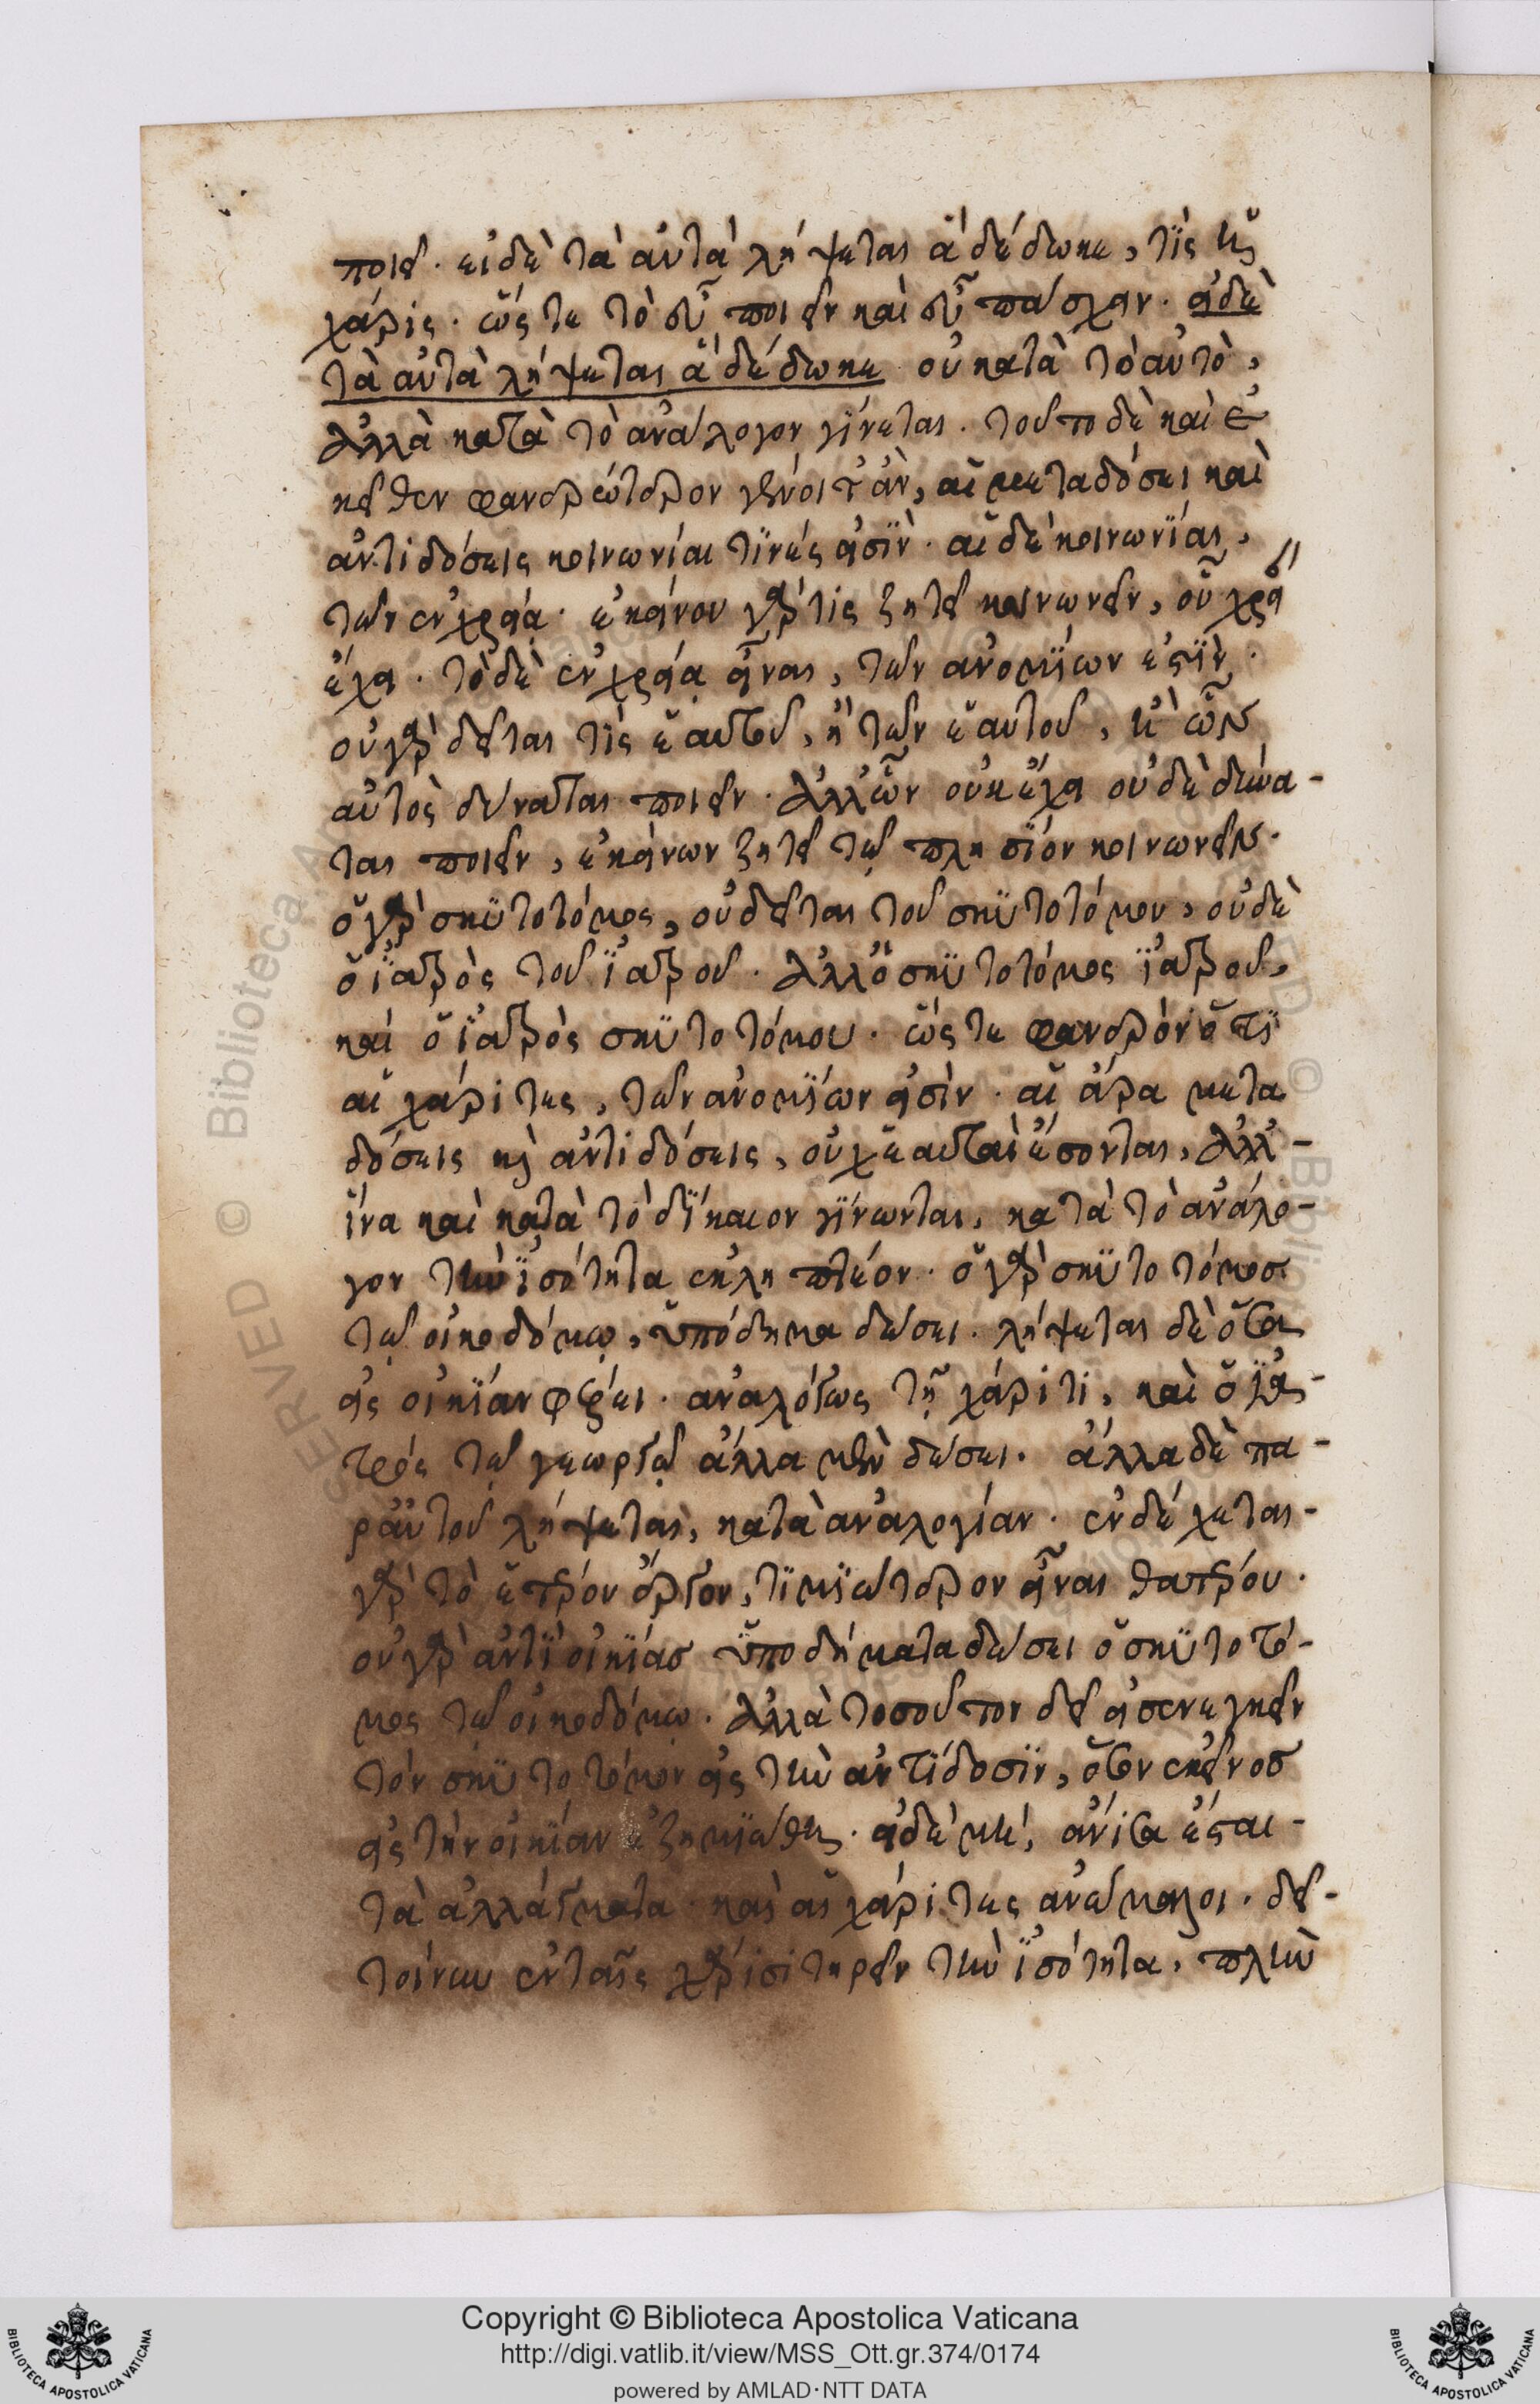 ποιεῖ. εἰ δὲ τὰ αὐτὰ λήψεται ἃ δέδωκε, τὶς ἡ
χάρις. ὥς τε τὸ εὖ ποιεῖν καὶ εὖ πάσχειν. εἰ δὲ
τὰ αὐτὰ λήψεται ἃ δέδωκε οὐ κατὰ τὸ αὐτὸ,
ἀλλὰ κατὰ τὸ ἀνάλογον γίνεται. τοῦτο δὲ καὶ ἐ
κεῖθεν φανερώτερον γένοιτ' ἂν, αἱ μεταδόσει καὶ
ἀντιδόσεις κοινωνίαι τινές εἰσὶν. αἱ δὲ κοινωνίαι,
τῶν ἐν χρεία. ἐκείνου γὰρ τίς ζητεῖ κοινωνεῖν, οὗ χρεί
ἔχει. τὸ δὲ ἐν χρεία εἶναι, τῶν ἀνομοίων ἐστὶν.
οὐ γὰρ δεῖται τὶς ἑαυτοῦ, ἢ τῶν ἑαυτοῦ, ἢ ὧν
αὐτὸς δύναται ποιεῖν. ἀλλ' ὧν οὐκ ἔχει οὐδὲ δύνα-
ται ποιεῖν, ἐκείνων ζητεῖ τῷ πλησίον κοινωνεῖν.
ὁ γὰρ σκυτοτόμος, οὐ δεῖται τοῦ σκυτοτόμου, οὐδὲ
ὁ ἰατρὸς τοῦ ἰατροῦ. ἀλλ' ὁ σκυτοτόμος ἰατροῦ,
καὶ ὁ ἰατρὸς σκυτοτόμου. ὥς τε φανερὸν ὅτι
αἱ χάριτες, τῶν ἀνομοίων εἰσὶν. αἱ ἄρα μετα
δόσεις καὶ ἀντιδόσεις, οὐχ' αὗται ἔσονται, ἀλλ' -
ἵνα καὶ κατὰ τὸ δίκαιον γίνωνται, κατὰ τὸ ἀνάλο-
γον τὴν ἰσότητα ἐκληπτέον. ὁ γὰρ σκυτοτόμος
τῷ οἰκοδόμῳ, ὑπόδημα δώσει. λήψεται δὲ ὅσα
εἰς οἰκίαν φέρει. ἀναλόγως τῇ χάριτι, καὶ ὁ ἰα-
τρός τῷ γεωργῷ ἄλλα μὲν δώσει. ἄλλα δὲ πα-
ρ' αὐτοῦ λήψεται, κατὰ ἀναλογίαν. ἐνδέχεται -
γὰρ τὸ ἕτερον ἔργον, τιμιώτερον εἶναι θατέρου.
οὐ γὰρ ἀντὶ οἰκίας ὑποδήματα δώσει ὁ σκυτοτό-
μος τῷ οἰκοδόμῳ. ἀλλὰ τοσοῦτον δεῖ εἰσενεγκεῖν
τὸν σκυτοτόμον εἰς τὴν ἀντίδοσιν, ὅσον ἐκεῖνος
εἰς τὴν οἰκίαν ἐζημιώθη. εἰ δὲ μή, ἄνισα ἔσται -
τὰ ἀλλάγματα καὶ αἱ χάριτες ἀνώμαλοι. δεῖ -
τοίνυν ἐν ταῖς χάρισι τηρεῖν τὴν ἰσότητα, πλὴν
Copyright © Biblioteca Apostolica Vaticana
http://digi.vatlib.it/view/MSS_Ott.gr.374/0174
powered by AMLAD·NTT DATA
BIBLIOTECA APOSTOLICA VATICANA
BIBLIOTECA APOSTOLICA VATICANA